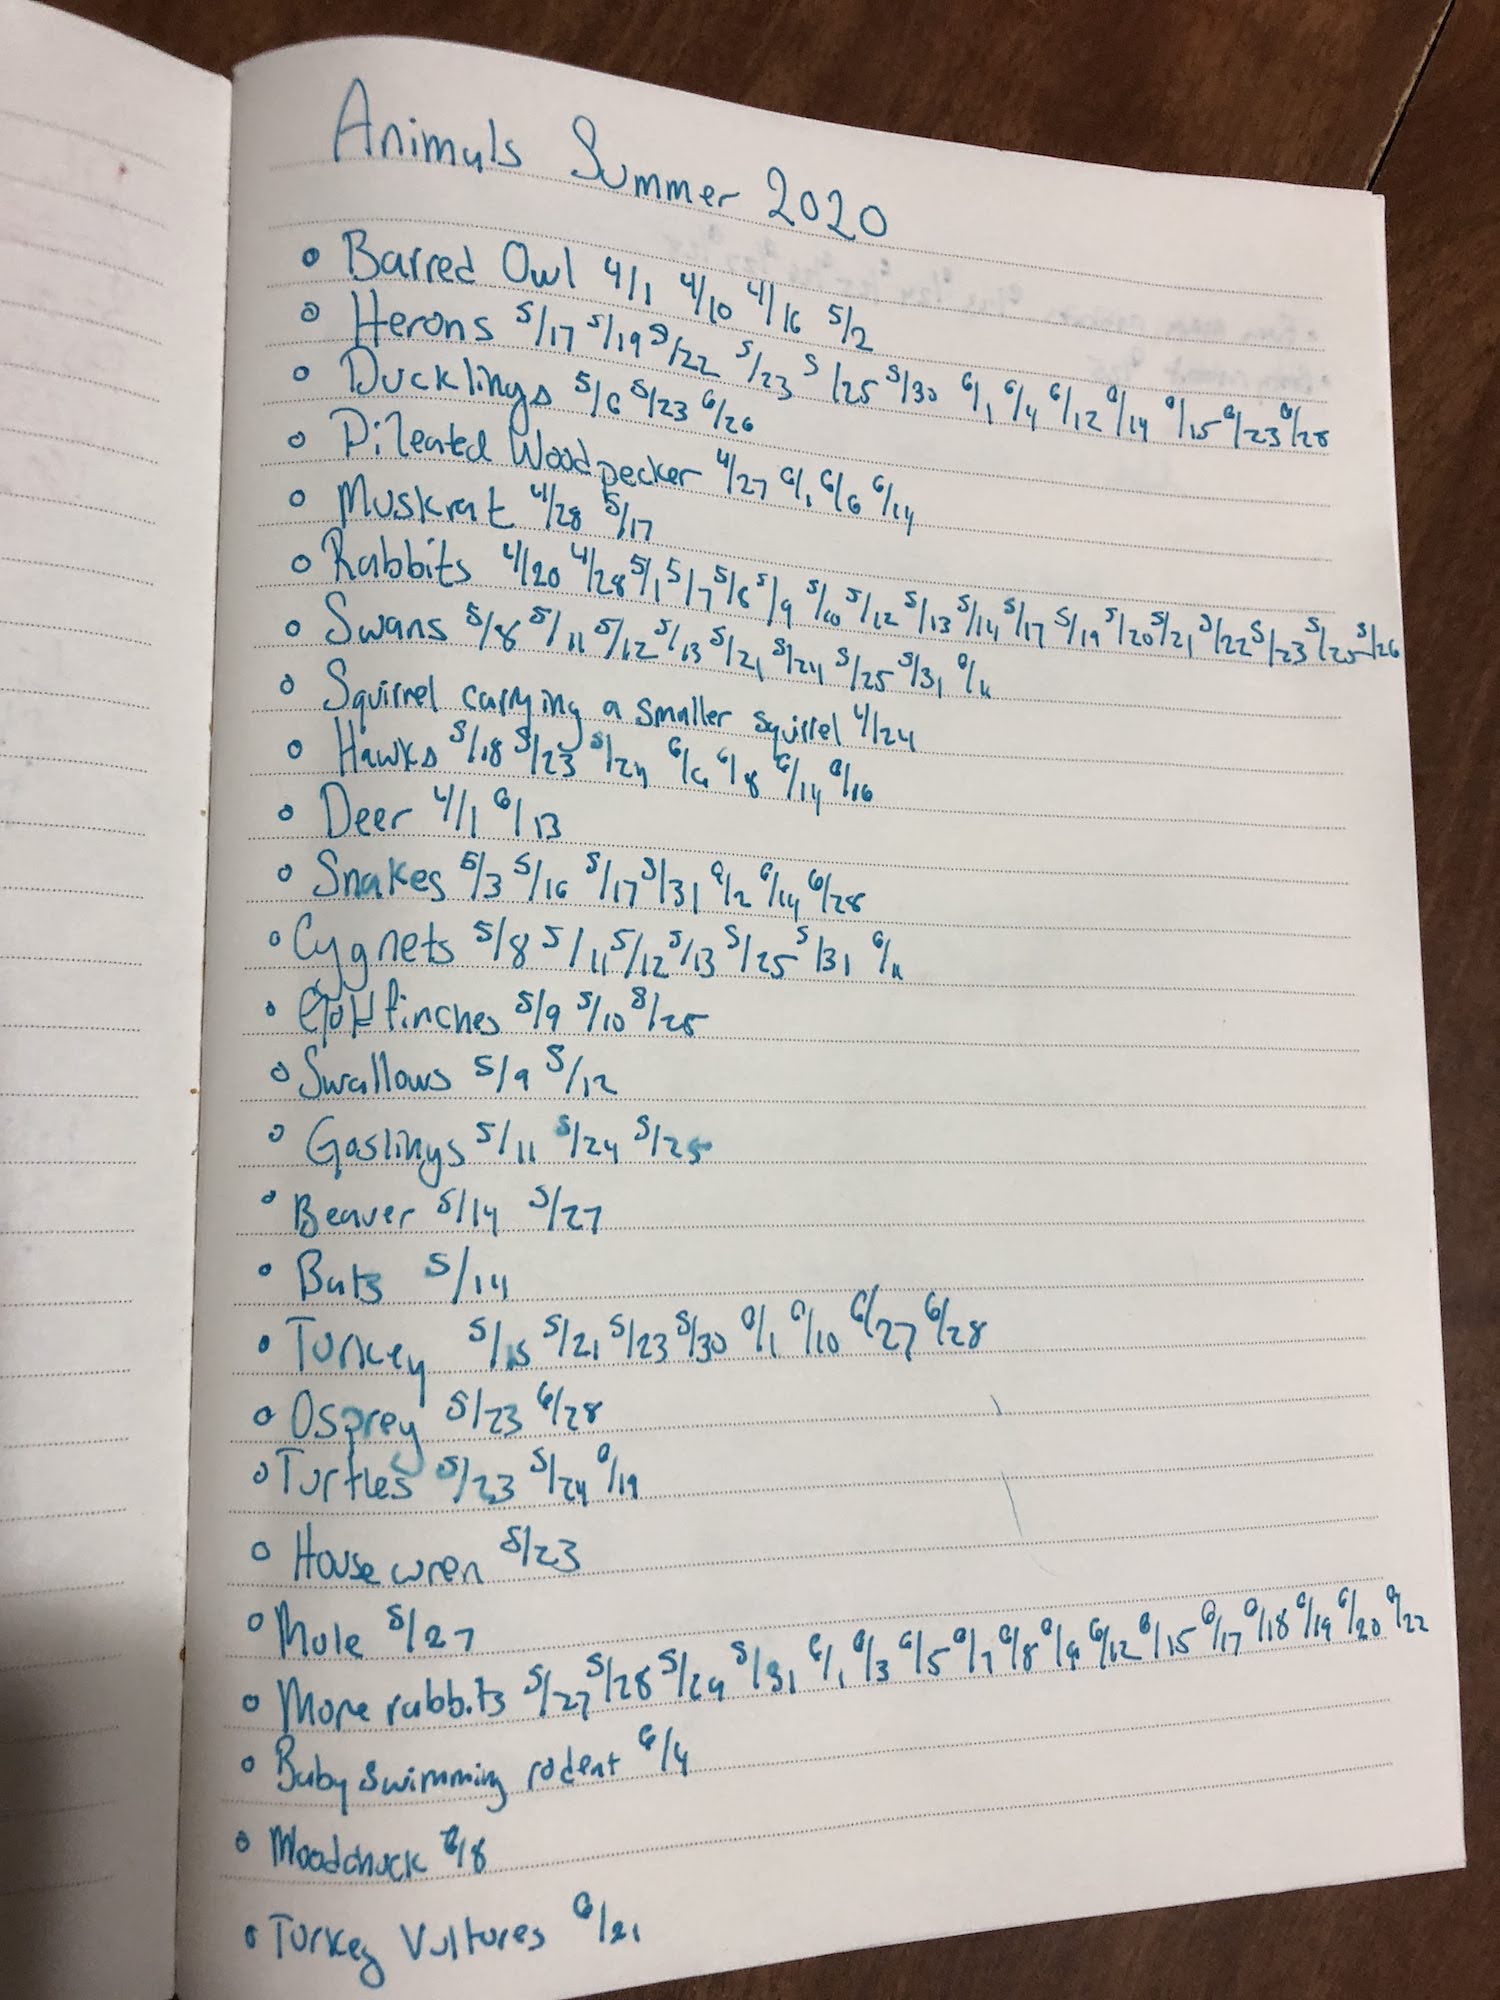 Animals Summer 2020
Barred Owl 4/1 4/10 4/16 5/2
Herons 5/17 5/19 5/22 5/23 5/25 5/30 6/1 6/4 6/12 6/14 6/15 6/23 6/28
Ducklings 5/6 5/23 6/26
Pileated Woodpecker 4/27 6/1 6/6 6/14
Muskrat 4/28 5/17
Rabbits 4/20 4/28 5/1 5/7 5/8 5/9 5/10 5/12 5/13 5/14 5/17 5/19 5/20 5/21 5/22 5/23 5/25 5/26
Swans 5/8 5/11 5/12 5/13 5/21 5/24 5/25 5/31
Squirrel carrying a smaller squirrel 4/24
Hawks 5/18 5/23 5/24 6/8 6/14 6/16
Deer 4/1 6/13
Snakes 5/3 5/16 5/17 5/31 6/2 6/14 6/28
Cygnets 5/8 5/11 5/12 5/13 5/25 5/31
Goldfinches 5/9 5/10 5/25
Swallows 5/9 5/12
Goslings 5/11 5/24 5/25
Beaver 5/14 5/27
Bats 5/14
Turkey 5/15 5/21 5/23 5/30 6/1 6/10 6/27 6/28
Osprey 5/23 6/28
Turtles 5/23 5/24 6/19
House wren 5/23
Mole 5/27
More rabbits 5/27 5/28 5/29 5/31 6/1 6/3 6/5 6/7 6/8 6/9 6/12 6/15 6/17 6/18 6/19 6/20 6/22
Baby swimming rodent 6/4
Woodchuck 6/8
Turkey Vultures 6/21